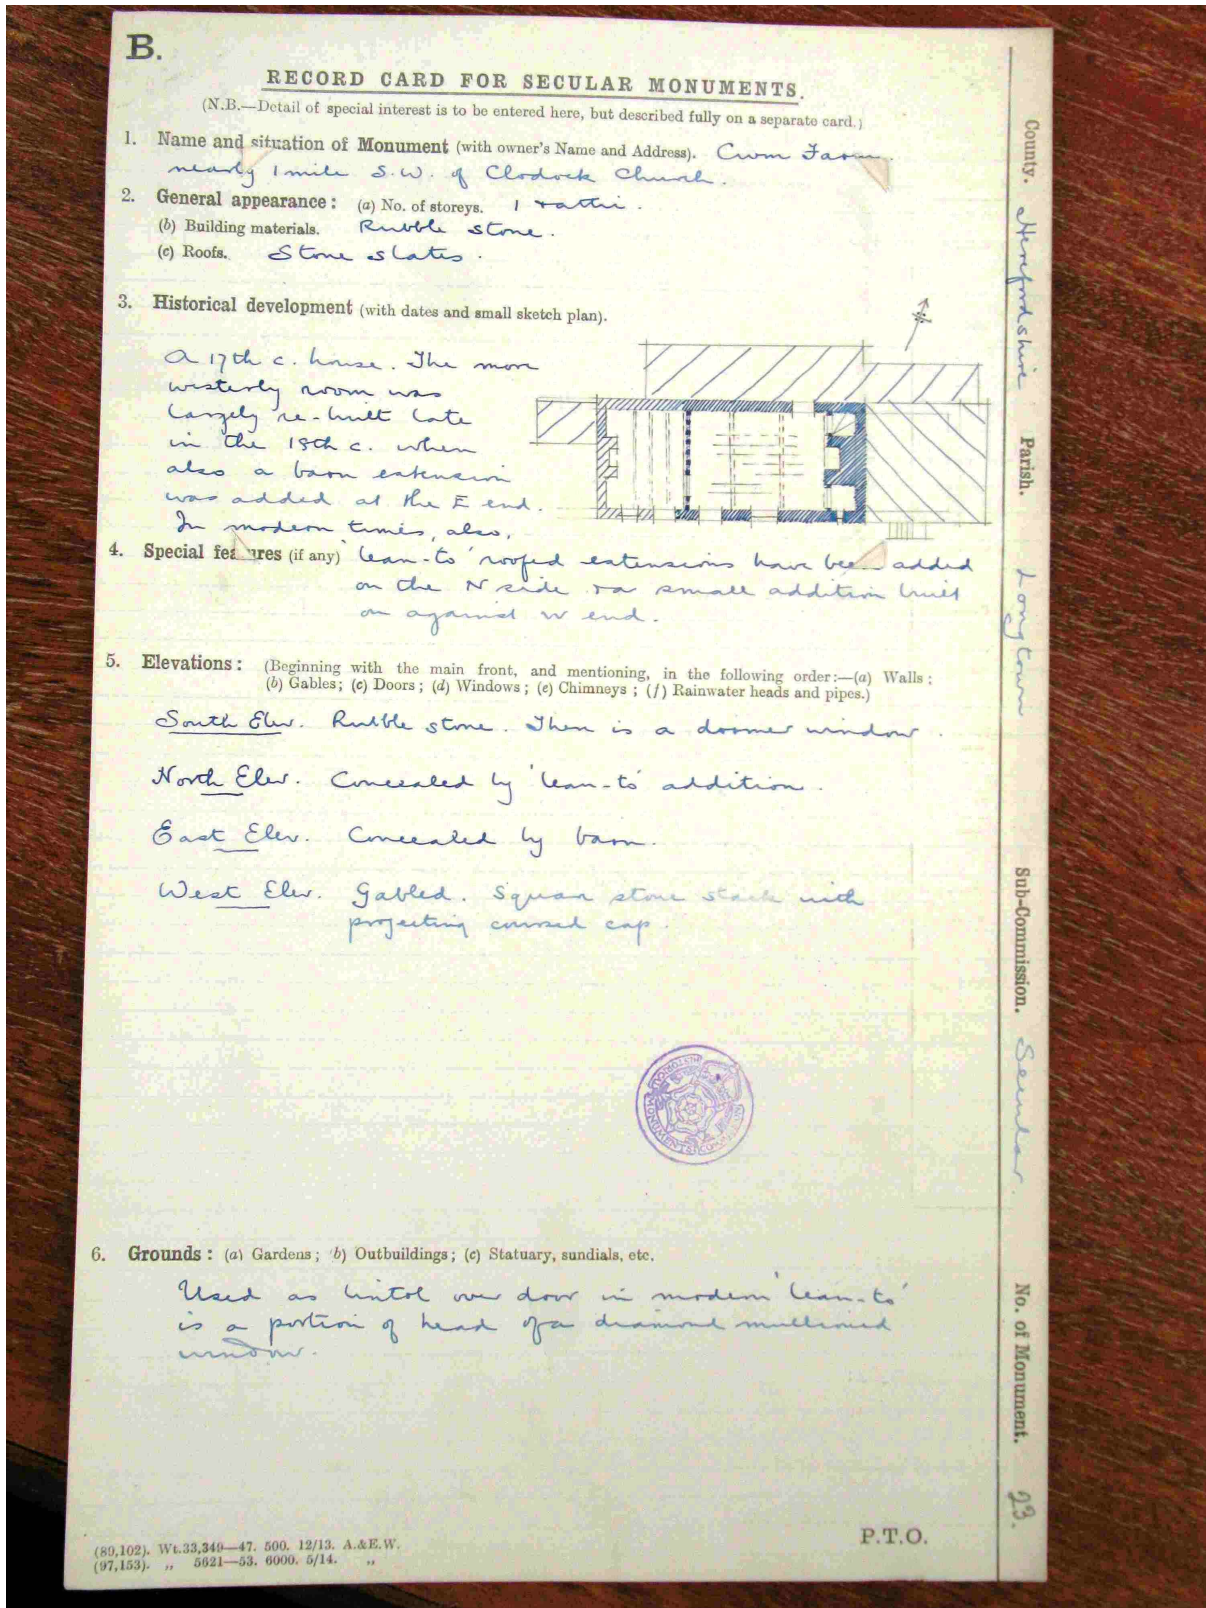 B.
RECORD CARD FOR SECULAR MONUMENTS.
(N.B.—Detail of special interest is to be entered here, but described fully on a separate card.)
1. Name and situation of Monument (with owner's Name and Address). Cwm Farm.
nearly 1 mile S.W. of Clodock Church.
2. General appearance: (a) No. of storeys. 1 + attic.
(b) Building materials. Rubble stone.
(c) Roofs. Stone slates.
3. Historical development (with dates and small sketch plan).
A 17th c. house. The more
westerly room was
largely re-built late
in the 18th c. when
also a barn extension
was added at the E end.
In modern times, also,
4. Special features (if any) 'lean-to' roofed extensions have been added
on the N side + a small addition built
on against W end.
5. Elevations: (Beginning with the main front, and mentioning, in the following order:—(a) Walls;
(b) Gables; (c) Doors; (d) Windows; (e) Chimneys; (f) Rainwater heads and pipes.)
South Elev. Rubble stone. There is a dormer window.
North Elev. Concealed by 'lean-to' addition.
East Elev. Concealed by barn.
West Elev. Gabled. Square stone stack with
projecting coursed cap.
6. Grounds: (a) Gardens; (b) Outbuildings; (c) Statuary, sundials, etc.
Used as lintol over door in modern 'lean-to'
is a portion of head of a diamond mullioned
window.
(89,102). Wt.33,349—47. 500. 12/13. A.&E.W.
(97,153). „ 5621—53. 6000. 5/14. „
P.T.O.
County. Herefordshire Parish. Longtown Sub-Commission. Secular. No. of Monument. 23.